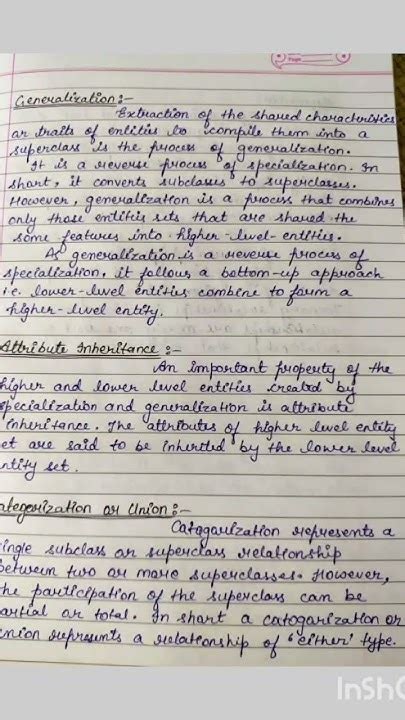 Page
Generalization:-
Extraction of the shared characteristics
or traits of entities to compile them into a
superclass is the process of generalization.
It is a reverse process of specialization. In
short, it converts subclasses to superclasses.
However, generalization is a process that combines
only those entities sets that are shared the
some features into higher-level-entities.
As generalization is a reverse process of
specialization, it follows a bottom-up approach
i.e. lower-level entities combine to form a
higher-level entity.
Attribute Inheritance:-
An important property of the
higher and lower level entities created by
specialization and generalization is attribute
inheritance. The attributes of higher level entity
set are said to be inherited by the lower level
entity set.
ategorization or Union:-
Catogorization represents a
single subclass or superclass relationship
between two or more superclasses. However,
the participation of the superclass can be
partial or total. In short a catogorization or
union represents a relationship of 'either' type.
InShO